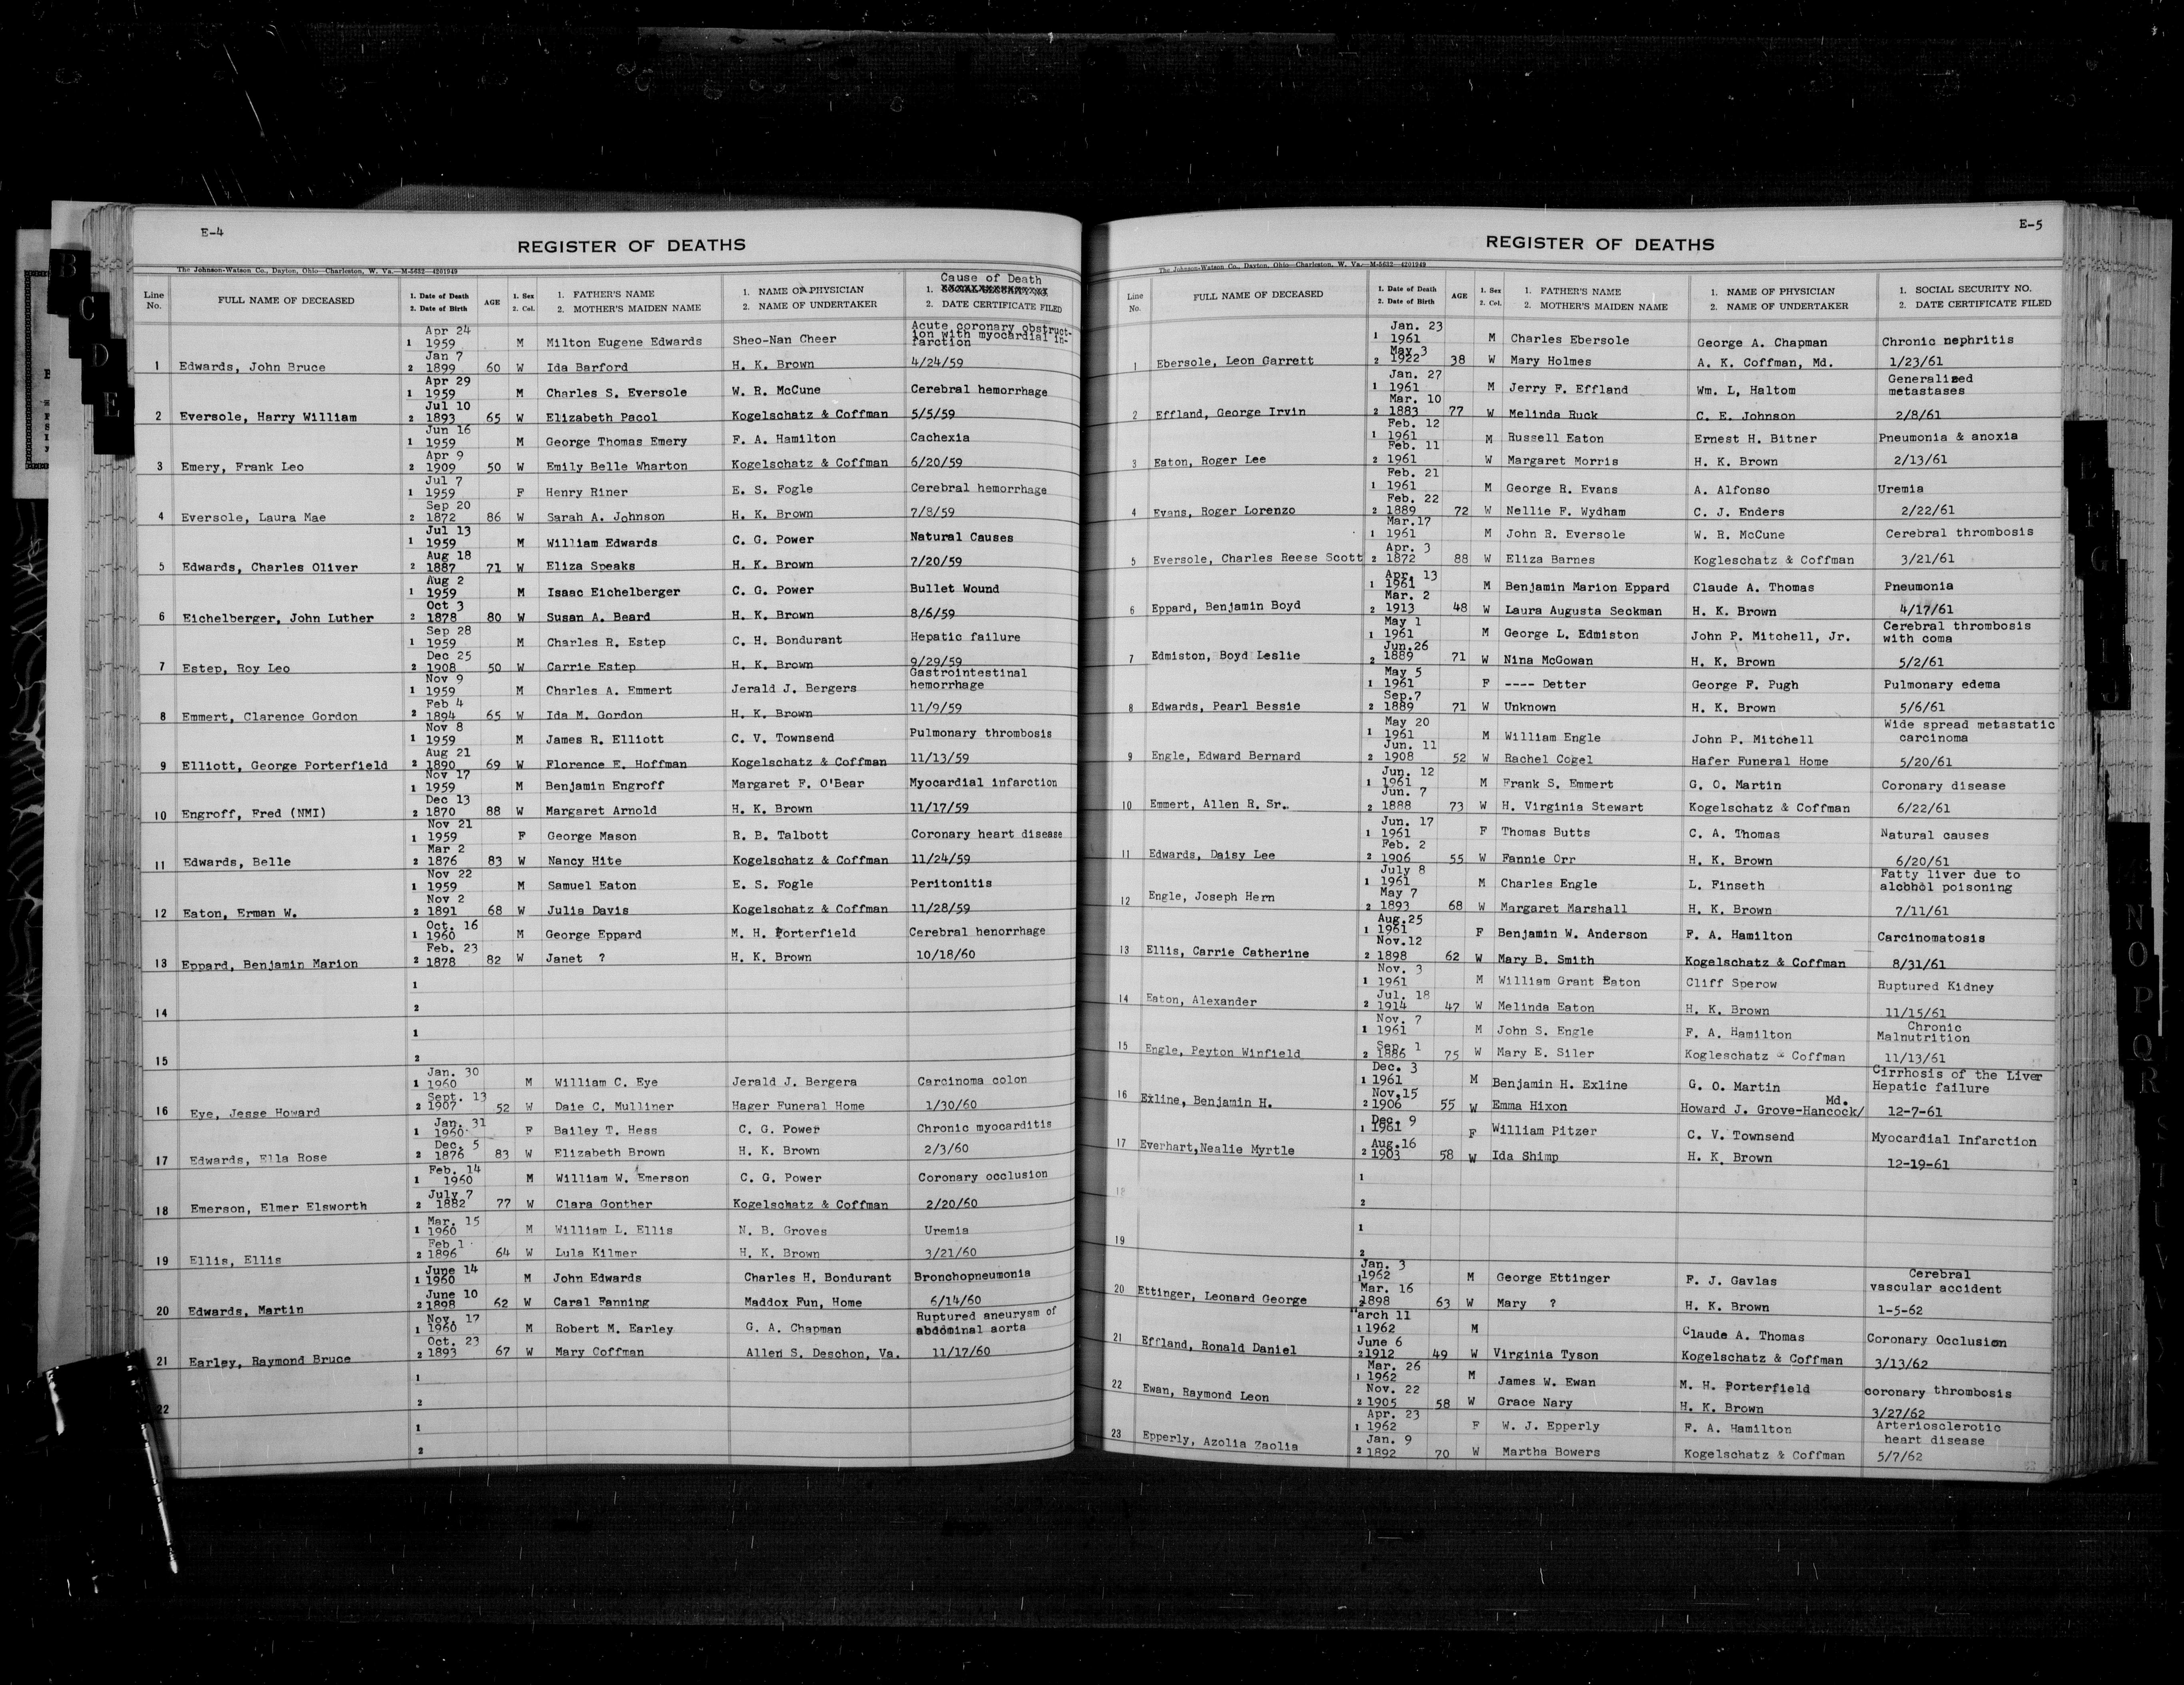 E-4
REGISTER OF DEATHS
The Johnson-Watson Co., Dayton, Ohio—Charleston, W. Va.—M-5632—4201949
Line No. FULL NAME OF DECEASED 1. Date of Death 2. Date of Birth AGE 1. Sex 2. Col. 1. FATHER'S NAME 2. MOTHER'S MAIDEN NAME 1. NAME OF PHYSICIAN 2. NAME OF UNDERTAKER Cause of Death 1. SOCIAL SECURITY NO. 2. DATE CERTIFICATE FILED
1 Apr 24 1959 M Milton Eugene Edwards Sheo-Nan Cheer Acute coronary obstruct-ion with myocardial in-farction
1 Edwards, John Bruce 2 Jan 7 1899 60 W Ida Barford H. K. Brown 4/24/59
1 Apr 29 1959 M Charles S. Eversole W. R. McCune Cerebral hemorrhage
2 Eversole, Harry William 2 Jul 10 1893 65 W Elizabeth Pacol Kogelschatz & Coffman 5/5/59
1 Jun 16 1959 M George Thomas Emery F. A. Hamilton Cachexia
3 Emery, Frank Leo 2 Apr 9 1909 50 W Emily Belle Wharton Kogelschatz & Coffman 6/20/59
1 Jul 7 1959 F Henry Riner E. S. Fogle Cerebral hemorrhage
4 Eversole, Laura Mae 2 Sep 20 1872 86 W Sarah A. Johnson H. K. Brown 7/8/59
1 Jul 13 1959 M William Edwards C. G. Power Natural Causes
5 Edwards, Charles Oliver 2 Aug 18 1887 71 W Eliza Speaks H. K. Brown 7/20/59
1 Aug 2 1959 M Isaac Eichelberger C. G. Power Bullet Wound
6 Eichelberger, John Luther 2 Oct 3 1878 80 W Susan A. Beard H. K. Brown 8/6/59
1 Sep 28 1959 M Charles R. Estep C. H. Bondurant Hepatic failure
7 Estep, Roy Leo 2 Dec 25 1908 50 W Carrie Estep H. K. Brown 9/29/59
1 Nov 9 1959 M Charles A. Emmert Jerald J. Bergers Gastrointestinal hemorrhage
8 Emmert, Clarence Gordon 2 Feb 4 1894 65 W Ida M. Gordon H. K. Brown 11/9/59
1 Nov 8 1959 M James R. Elliott C. V. Townsend Pulmonary thrombosis
9 Elliott, George Porterfield 2 Aug 21 1890 69 W Florence E. Hoffman Kogelschatz & Coffman 11/13/59
1 Nov 17 1959 M Benjamin Engroff Margaret F. O'Bear Myocardial infarction
10 Engroff, Fred (NMI) 2 Dec 13 1870 88 W Margaret Arnold H. K. Brown 11/17/59
1 Nov 21 1959 F George Mason R. B. Talbott Coronary heart disease
11 Edwards, Belle 2 Mar 2 1876 83 W Nancy Hite Kogelschatz & Coffman 11/24/59
1 Nov 22 1959 M Samuel Eaton E. S. Fogle Peritonitis
12 Eaton, Erman W. 2 Nov 2 1891 68 W Julia Davis Kogelschatz & Coffman 11/28/59
1 Oct. 16 1960 M George Eppard M. H. Porterfield Cerebral henorrhage
13 Eppard, Benjamin Marion 2 Feb. 23 1878 82 W Janet ? H. K. Brown 10/18/60
1
14 2
1
15 2
1 Jan. 30 1960 M William C. Eye Jerald J. Bergera Carcinoma colon
16 Eye, Jesse Howard 2 Sept. 13 1907 52 W Daie C. Mulliner Hager Funeral Home 1/30/60
1 Jan. 31 1960 F Bailey T. Hess C. G. Power Chronic myocarditis
17 Edwards, Ella Rose 2 Dec. 5 1876 83 W Elizabeth Brown H. K. Brown 2/3/60
1 Feb. 14 1960 M William W. Emerson C. G. Power Coronary occlusion
18 Emerson, Elmer Elsworth 2 July 7 1882 77 W Clara Gonther Kogelschatz & Coffman 2/20/60
1 Mar. 15 1960 M William L. Ellis N. B. Groves Uremia
19 Ellis, Ellis 2 Feb 1 1896 64 W Lula Kilmer H. K. Brown 3/21/60
1 June 14 1960 M John Edwards Charles H. Bondurant Bronchopneumonia
20 Edwards, Martin 2 June 10 1898 62 W Caral Fanning Maddox Fun, Home 6/14/60
1 Nov. 17 1960 M Robert M. Earley G. A. Chapman Ruptured aneurysm of abdominal aorta
21 Earley, Raymond Bruce 2 Oct. 23 1893 67 W Mary Coffman Allen S. Deschon, Va. 11/17/60
1
22 2
1
2
E-5
REGISTER OF DEATHS
The Johnson-Watson Co., Dayton, Ohio—Charleston, W. Va.—M-5632—4201949
Line No. FULL NAME OF DECEASED 1. Date of Death 2. Date of Birth AGE 1. Sex 2. Col. 1. FATHER'S NAME 2. MOTHER'S MAIDEN NAME 1. NAME OF PHYSICIAN 2. NAME OF UNDERTAKER 1. SOCIAL SECURITY NO. 2. DATE CERTIFICATE FILED
1 Jan. 23 1961 M Charles Ebersole George A. Chapman Chronic nephritis
1 Ebersole, Leon Garrett 2 May 3 1922 38 W Mary Holmes A. K. Coffman, Md. 1/23/61
1 Jan. 27 1961 M Jerry F. Effland Wm. L, Haltom Generalized metastases
2 Effland, George Irvin 2 Mar. 10 1883 77 W Melinda Ruck C. E. Johnson 2/8/61
1 Feb. 12 1961 M Russell Eaton Ernest H. Bitner Pneumonia & anoxia
3 Eaton, Roger Lee 2 Feb. 11 1961 W Margaret Morris H. K. Brown 2/13/61
1 Feb. 21 1961 M George R. Evans A. Alfonso Uremia
4 Evans, Roger Lorenzo 2 Feb. 22 1889 72 W Nellie F. Wydham C. J. Enders 2/22/61
1 Mar.17 1961 M John R. Eversole W. R. McCune Cerebral thrombosis
5 Eversole, Charles Reese Scott 2 Apr. 3 1872 88 W Eliza Barnes Kogleschatz & Coffman 3/21/61
1 Apr. 13 1961 M Benjamin Marion Eppard Claude A. Thomas Pneumonia
6 Eppard, Benjamin Boyd 2 Mar. 2 1913 48 W Laura Augusta Seckman H. K. Brown 4/17/61
1 May 1 1961 M George L. Edmiston John P. Mitchell, Jr. Cerebral thrombosis with coma
7 Edmiston, Boyd Leslie 2 Jun.26 1889 71 W Nina McGowan H. K. Brown 5/2/61
1 May 5 1961 F ---- Detter George F. Pugh Pulmonary edema
8 Edwards, Pearl Bessie 2 Sep.7 1889 71 W Unknown H. K. Brown 5/6/61
1 May 20 1961 M William Engle John P. Mitchell Wide spread metastatic carcinoma
9 Engle, Edward Bernard 2 Jun. 11 1908 52 W Rachel Cogel Hafer Funeral Home 5/20/61
1 Jun. 12 1961 M Frank S. Emmert G. O. Martin Coronary disease
10 Emmert, Allen R. Sr. 2 Jun. 7 1888 73 W H. Virginia Stewart Kogelschatz & Coffman 6/22/61
1 Jun. 17 1961 F Thomas Butts C. A. Thomas Natural causes
11 Edwards, Daisy Lee 2 Feb. 2 1906 55 W Fannie Orr H. K. Brown 6/20/61
1 July 8 1961 M Charles Engle L. Finseth Fatty liver due to alcohol poisoning
12 Engle, Joseph Hern 2 May 7 1893 68 W Margaret Marshall H. K. Brown 7/11/61
1 Aug.25 1961 F Benjamin W. Anderson F. A. Hamilton Carcinomatosis
13 Ellis, Carrie Catherine 2 Nov.12 1898 62 W Mary B. Smith Kogelschatz & Coffman 8/31/61
1 Nov. 3 1961 M William Grant Eaton Cliff Sperow Ruptured Kidney
14 Eaton, Alexander 2 Jul. 18 1914 47 W Melinda Eaton H. K. Brown 11/15/61
1 Nov. 7 1961 M John S. Engle F. A. Hamilton Chronic Malnutrition
15 Engle, Peyton Winfield 2 Sep. 1 1886 75 W Mary E. Siler Kogleschatz & Coffman 11/13/61
1 Dec. 3 1961 M Benjamin H. Exline G. O. Martin Cirrhosis of the Liver Hepatic failure
16 Exline, Benjamin H. 2 Nov.15 1906 55 W Emma Hixon Howard J. Grove-Hancock/ Md. 12-7-61
1 Dec. 9 1961 F William Pitzer C. V. Townsend Myocardial Infarction
17 Everhart,Nealie Myrtle 2 Aug.16 1903 58 W Ida Shimp H. K. Brown 12-19-61
1
18 2
1
19 2
1 Jan. 3 1962 M George Ettinger F. J. Gavlas Cerebral vascular accident
20 Ettinger, Leonard George 2 Mar. 16 1898 63 W Mary ? H. K. Brown 1-5-62
1 March 11 1962 M Claude A. Thomas Coronary Occlusion
21 Effland, Ronald Daniel 2 June 6 1912 49 W Virginia Tyson Kogelschatz & Coffman 3/13/62
1 Mar. 26 1962 M James W. Ewan M. H. Porterfield coronary thrombosis
22 Ewan, Raymond Leon 2 Nov. 22 1905 58 W Grace Nary H. K. Brown 3/27/62
1 Apr. 23 1962 F W. J. Epperly F. A. Hamilton Arteriosclerotic heart disease
23 Epperly, Azolia Zaolia 2 Jan. 9 1892 70 W Martha Bowers Kogelschatz & Coffman 5/7/62
B
C
D
E
E
F
G
N
O
P
Q
R